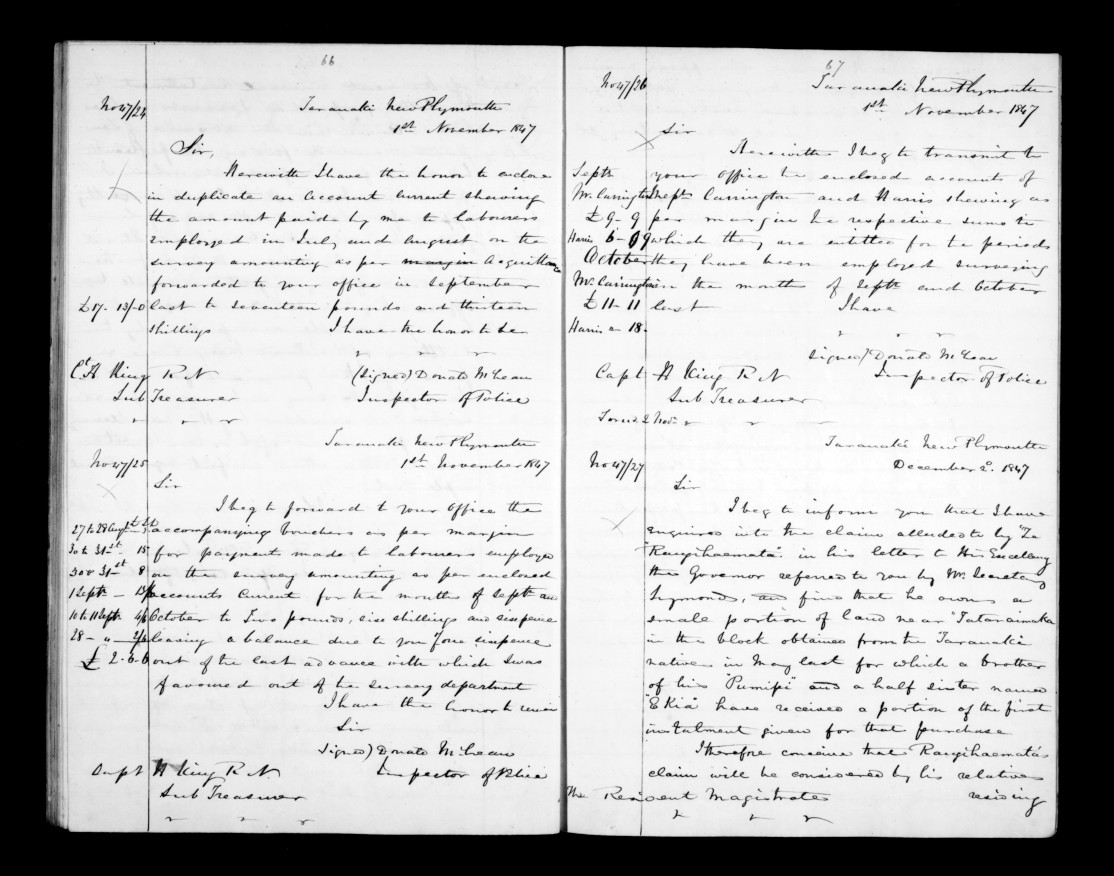 66
No 47/24
Taranaki New Plymouth
1st November 1847
Sir,
Herewith I have the honor to enclose
in duplicate an Account Current shewing
the amount paid by me to labourers
employed in July and August on the
survey amounting as per margin Acquittance
forwarded to your office in September
£17-13/-0 last to seventeen pounds and thirteen
shillings I have the honor to be
Ct. H King R N (signed) Donald McLean
Sub Treasurer Inspector of Police
Taranaki New Plymouth
No 47/25 1st November 1847
Sir
I beg to forward to your office the
27 to 28 Augt accompanying vouchers as per margin
30 to 31st 15 for payment made to labourers employed
30 & 31st 8 on the survey amounting as per enclosed
1 Septr accounts Current for the months of Septr and
10 to 11 Septr 4/6 October to Two pounds, six shillings and sixpence
28 - " - 2/6 leaving a balance due to you four sixpence
£ 2.6.6 out of the last advance with which I was
favoured out of the survey department
I have the honor to remain
Sir
Signed) Donald McLean
Capt H King R.N. Inspector of Police
Sub Treasurer
67
No 47/26
Taranaki New Plymouth
1st November 1847
Sir
Herewith I beg to transmit to
Septr your office the enclosed accounts of
Mr. Carrington Messrs Carrington and Harris shewing as
£9-9 per margin the respective sums to
Harris 6-09 which they are entitled for the periods
October they have been employed surveying
Mr. Carrington in the months of Septr and October
£11-11 last I have
Harris 18.
Signed) Donald McLean
Capt H King R N Inspector of Police
Sub Treasurer
2 Novr.
Taranaki New Plymouth
No 47/27 December 2d. 1847
Sir
I beg to inform you that I have
enquired into the claim alluded to by "Te
Rangihaeata" in his letter to His Excellency
the Governor referred to you by Mr. Secretary
Symonds, and find that he owns a
small portion of land near "Tataraimaka
in the block obtained from the Taranaki
natives in May last for which a brother
of his "Pumipi" and a half sister named
"E Kia" have received a portion of the first
instalment given for that purchase
I therefore conceive that Rangihaeata's
claim will be considered by his relatives
The Resident Magistrate residing